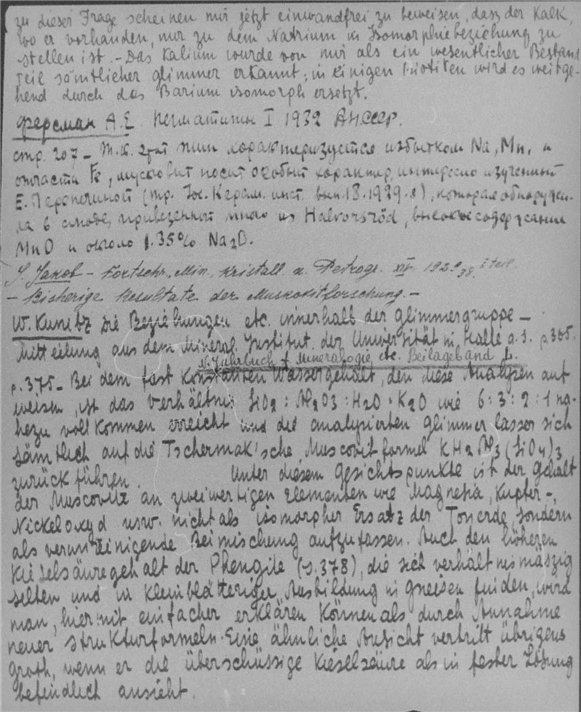 zu dieser Frage scheinen mir jetzt einwandfrei zu beweisen, dasz der Kalk,
wo er vorhanden, nur zu dem Natrium in Isomorphiebeziehung zu
stellen ist. – Das Kalium wurde von mir als ein wesentlicher Bestand
teil sämtlicher glimmer erkannt; in einigen Biotiten wird es weitge-
hend durch das Barium isomorph ersetzt.
Ферсман А.Е. Пегматиты I 1932 АНСССР.
стр. 207 – Т.к. этот тип характеризуется избытком Na, Mn, и
отчасти Fe, мусковит носит особый характер, интересно изученный
Е. (тр. Гос. Керам. инст. вып. 18. 1929.), которая обнаружи-
ла в слюде, привезенной мною из Halvorsröd, высокое содержание
MnO и около 1.35% Na2O.
J. Jakob – Fortschr. Min. Kristall. u. Petrogr. 192
– Bisherige Resultate der Muskovitforschung. –
W. Kunitz Die Beziehungen etc. innerhalb der glimmergruppe –
Mitteilung aus dem Mineral. Institut. der Universität in Halle a. S. p. 365.
N. Jahrbuch f. Mineralogie, etc. Beilageband
p. 375 – Bei dem fast konstanten Wassergehalt, den diese Analysen auf
weisen, ist das Verhältnis SiO2 : Al2O3 : H2O : K2O wie 6 : 3 : 2 : 1 na-
hezu vollkommen erreicht und die analysierten glimmer lassen sich
sämtlich auf die Tschermak'sche Muscovitformel KH2Al3(SiO4)3
zurück führen. Unter diesem Gesichtspunkte ist der gehalt
der Muscovite an zweiwertigen Elementen wie Magnesia, Kupfer-,
Nickeloxyd usw. nicht als isomorpher Ersatz der Tonerde sondern
als verunreinigende Beimischung aufzufassen. Auch den höheren
Kieselsäuregehalt der Phengite (s. 378), die sich verhältnismäszig
selten und in kleinblätteriger Ausbildung in gneisen finden, wird
man, hiermit einfacher erklären können als durch Annahme
neuer Strukturformeln. Eine ähnliche Ansicht vertritt übrigens
groth, wenn er die überschüssige Kieselsäure als in fester Lösung
befindlich ansieht.